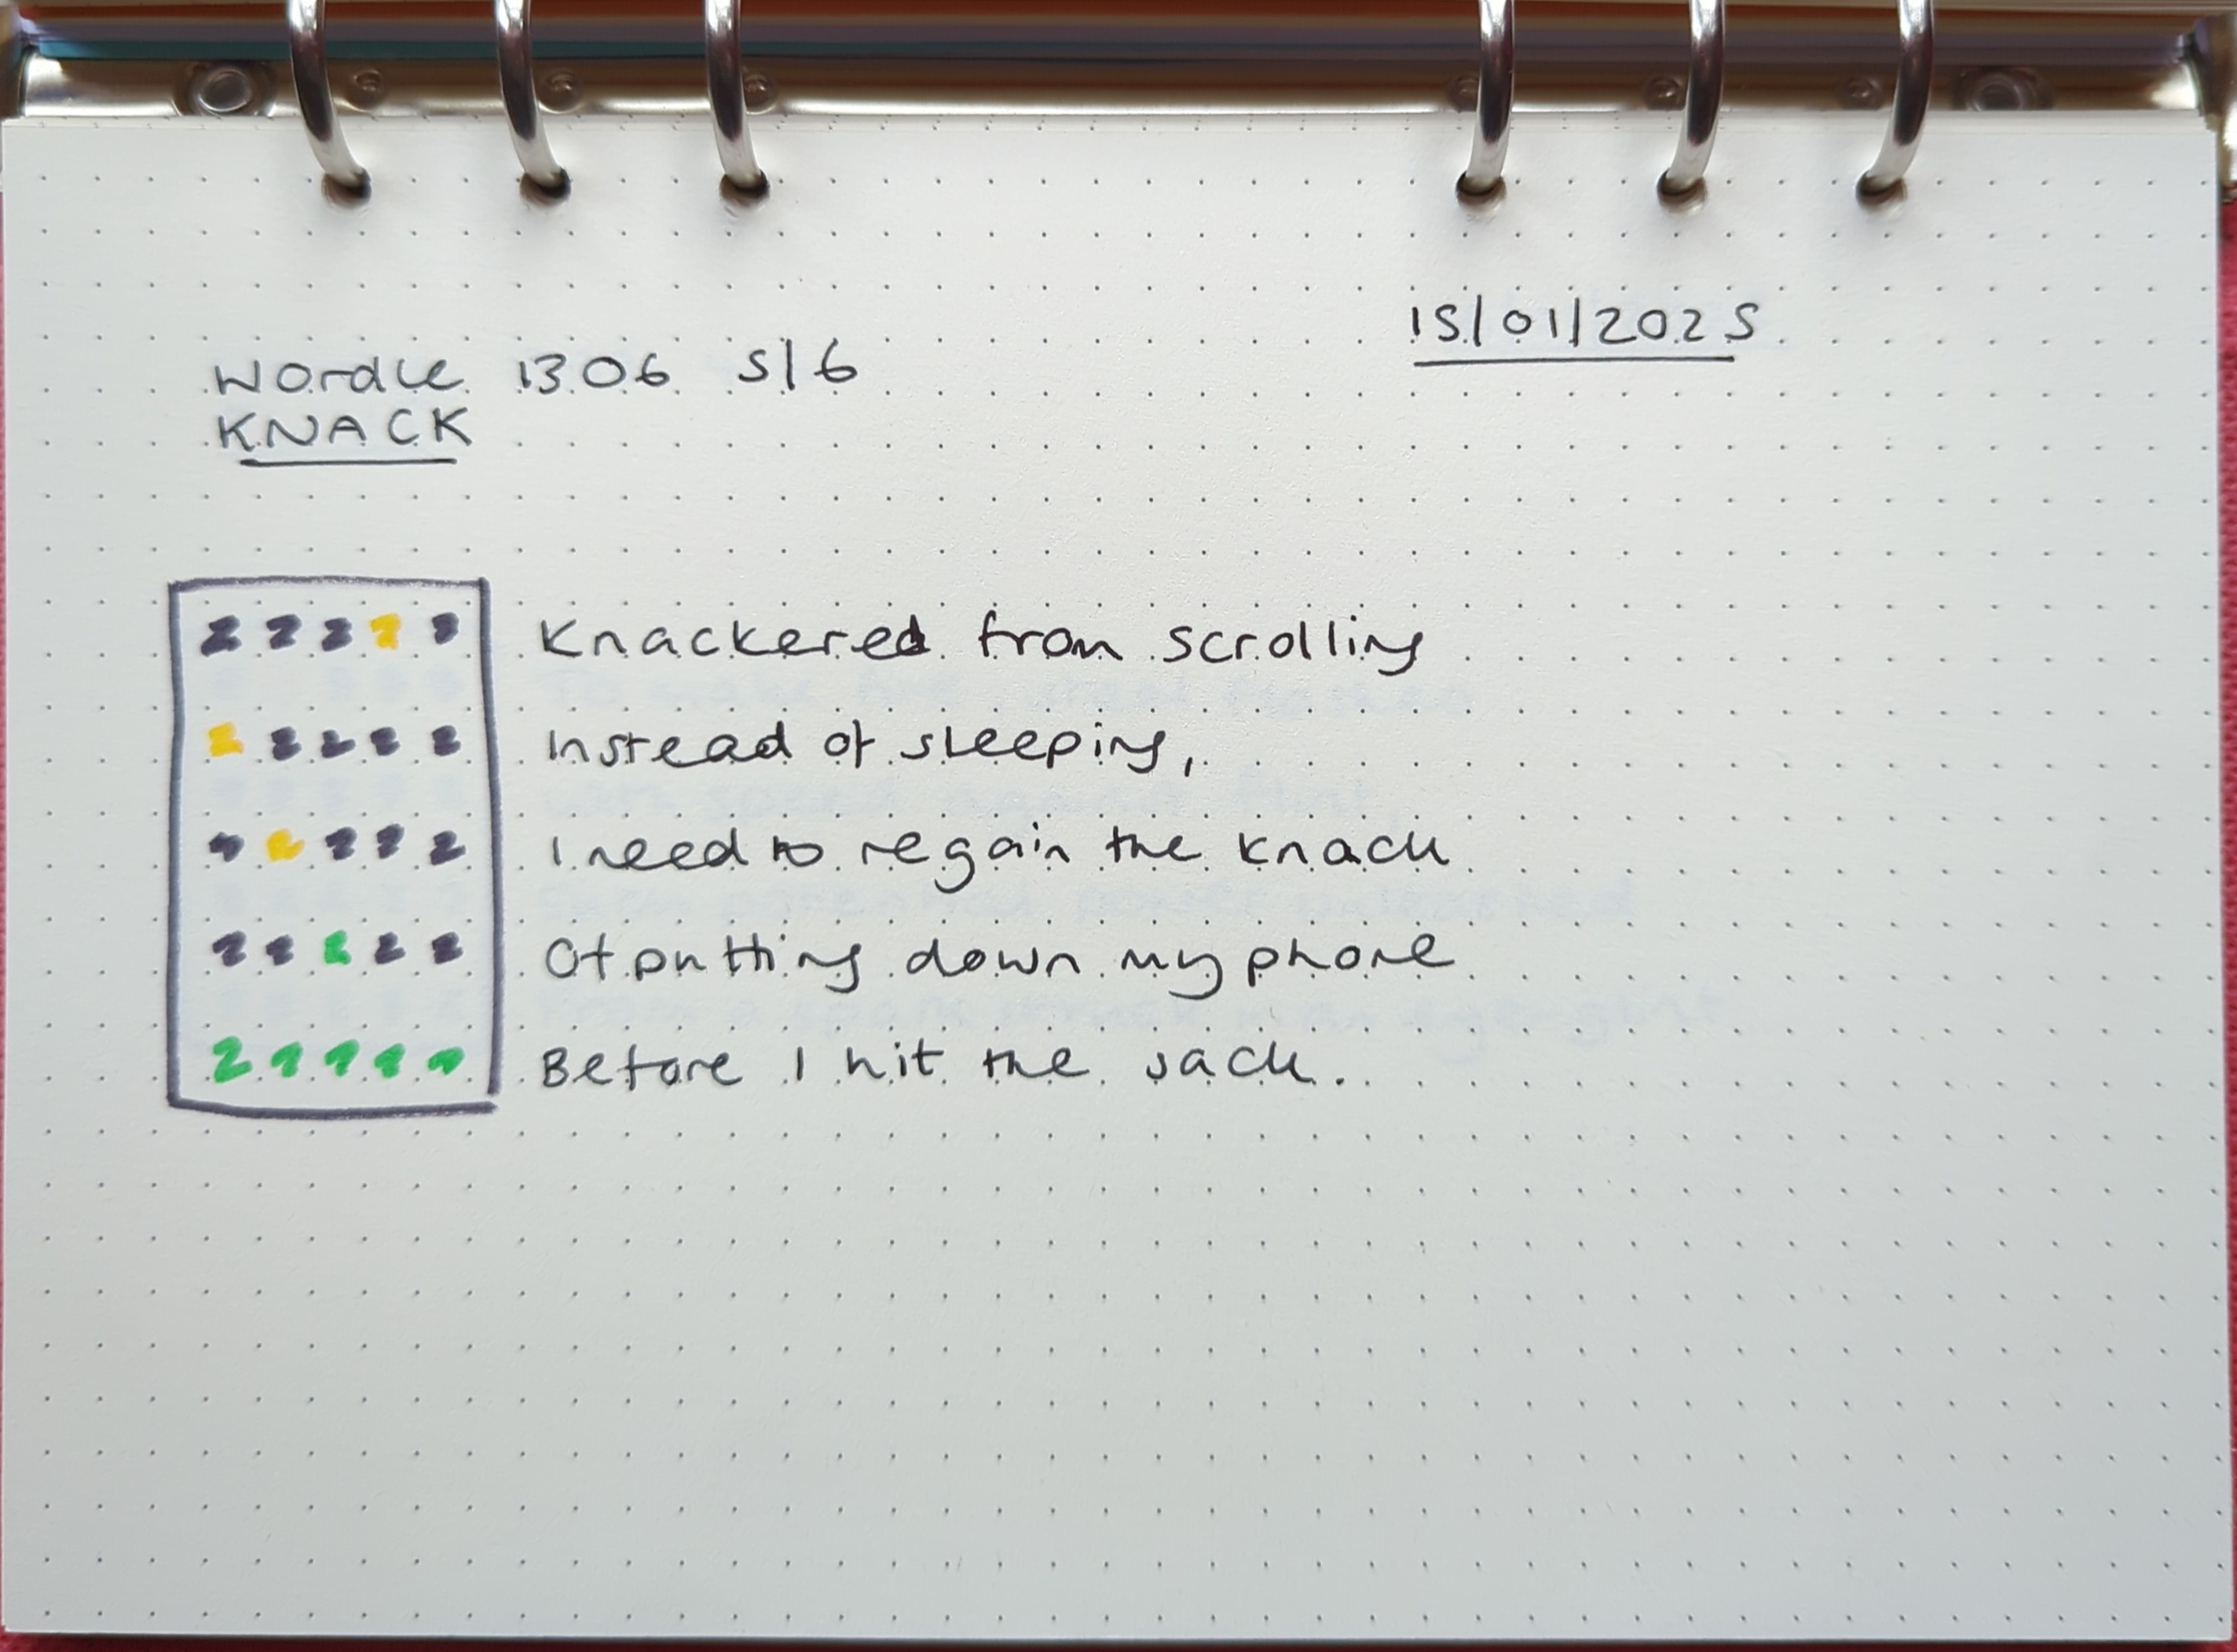 15/01/2025
Wordle 1306 5/6
KNACK
Knackered from scrolling
Instead of sleeping,
I need to regain the knack
Of putting down my phone
Before I hit the sack.